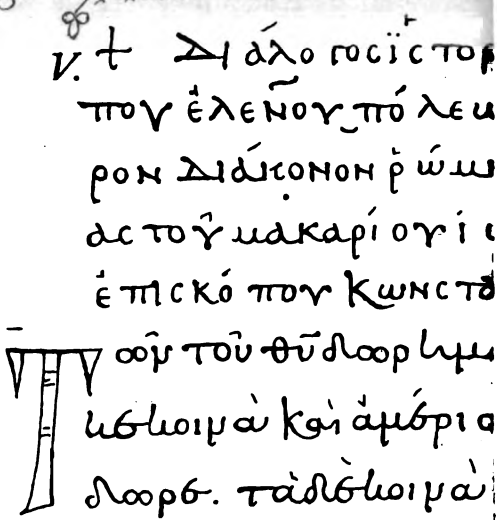 ν. + Διάλογος ἱστορ
που ἑλενουπόλεω
ρον διάκονον ῥώμη
ας τοῦ μακαρίου ἰ
ἐπισκόπου κωνστα
Τῶν τοῦ θῦ δωρημ
κοινὰ καὶ ἀμέρι
δωρε. τὰ δὲ κοινὰ